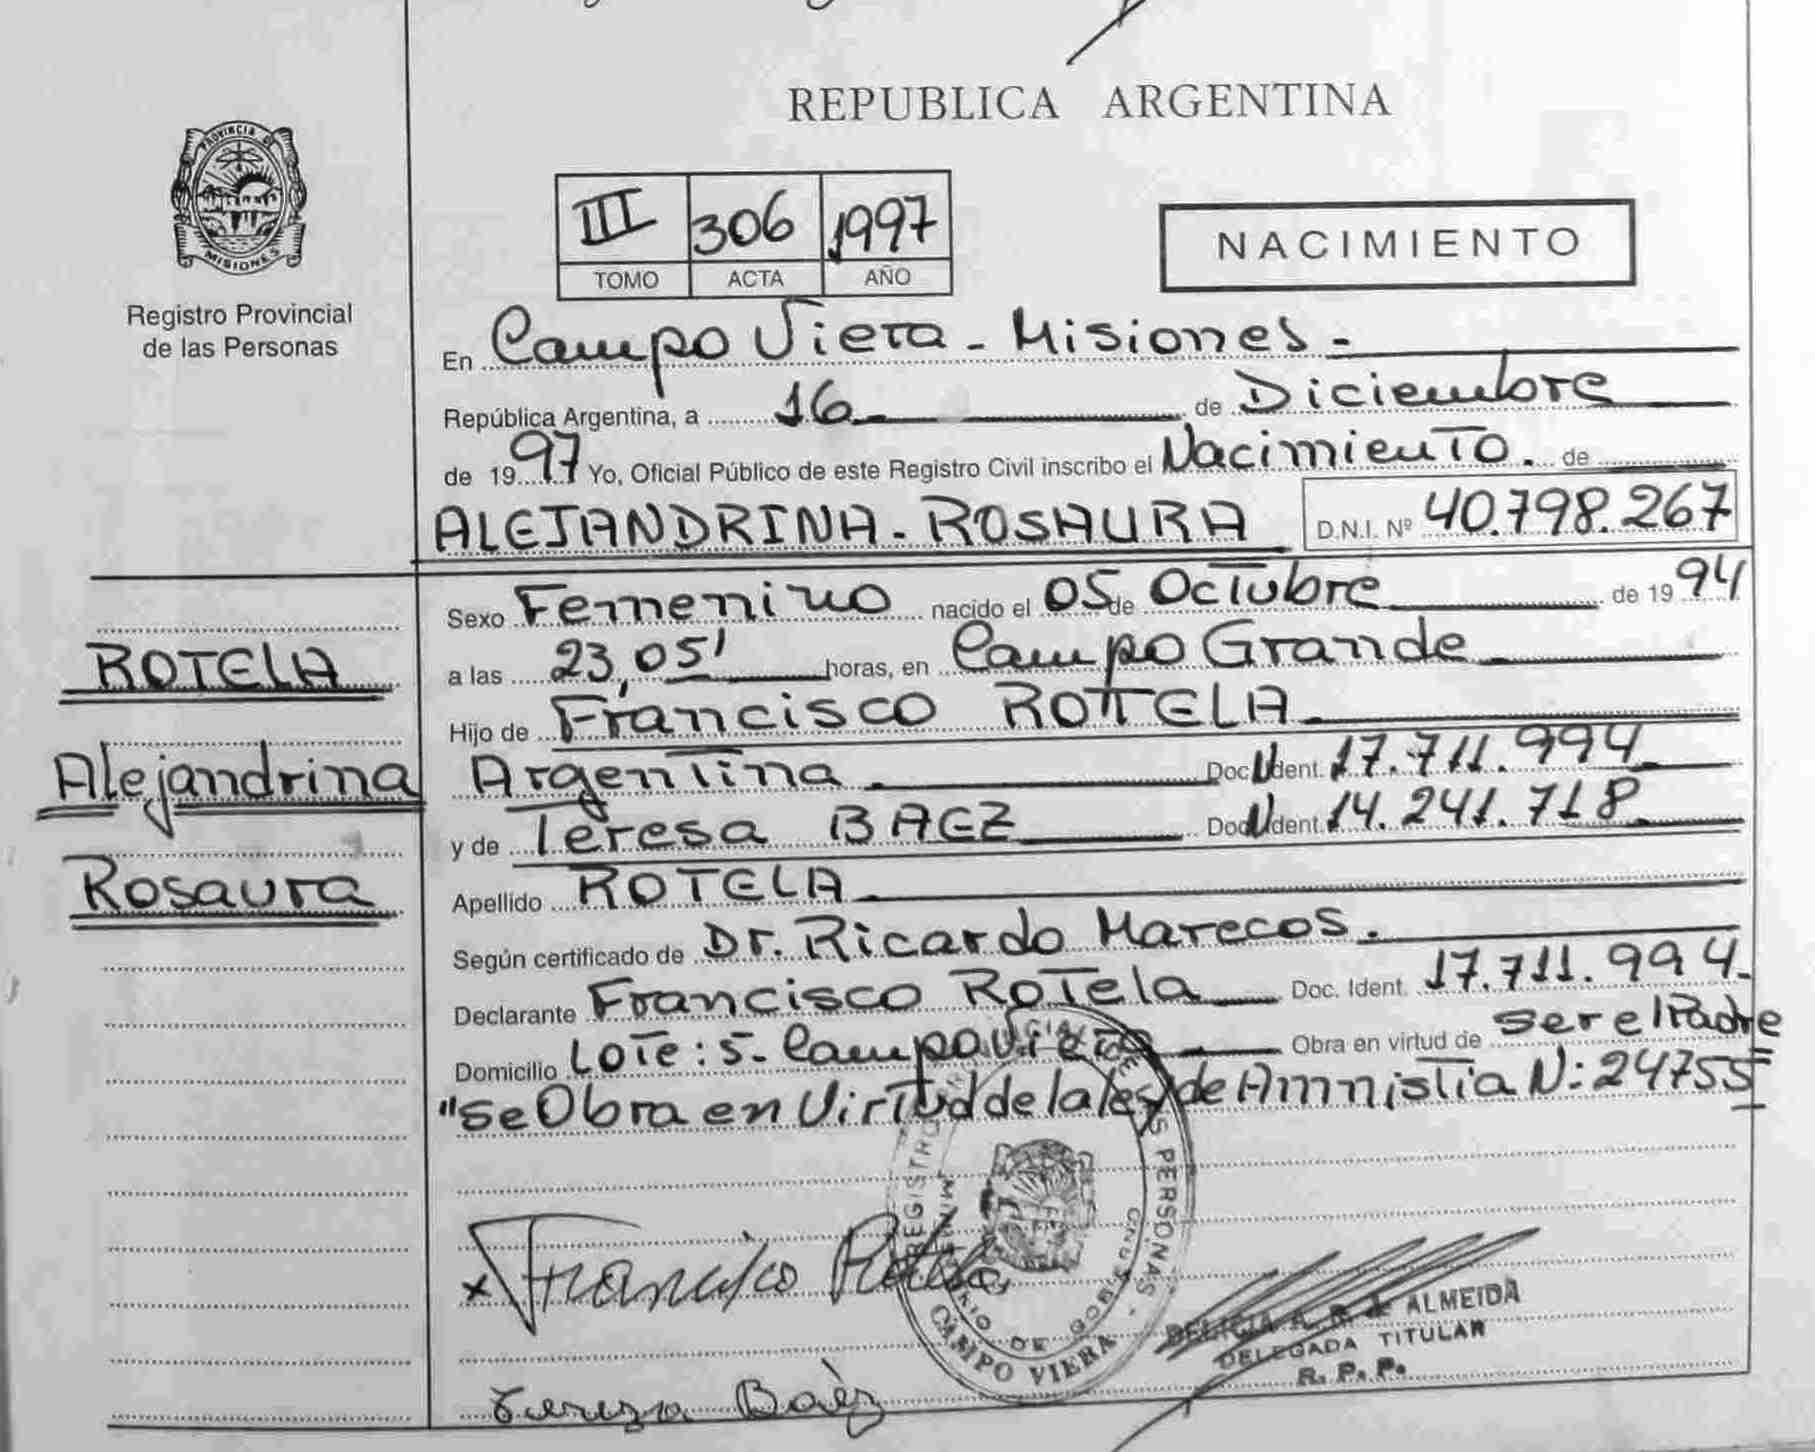 REPUBLICA ARGENTINA
PROVINCIA DE
MISIONES
Registro Provincial
de las Personas
III 306 1997
TOMO ACTA AÑO
NACIMIENTO
En Campo Viera - Misiones -
República Argentina, a 16 de Diciembre
de 1997 Yo, Oficial Público de este Registro Civil inscribo el Nacimiento. de
ALEJANDRINA - ROSAURA D.N.I. Nº 40.798.267
Sexo Femenino nacido el 05 de Octubre de 1994
ROTELA
a las 23,05' horas, en Campo Grande
Hijo de Francisco ROTTELA
Alejandrina
Argentina Doc. Ident. 17.711.994
y de Teresa BAEZ Doc. Ident. 14.241.718
Rosaura
Apellido ROTELA
Según certificado de Dr. Ricardo Marecos.
Declarante Francisco RoTela Doc. Ident. 17.711.994-
Domicilio Lote: 5- Campo Viera Obra en virtud de ser el Padre
"Se Obra en Virtud de la ley de Amnistia N: 24755
REGISTRO PROVINCIAL DE LAS PERSONAS -
MINISTERIO DE GOBIERNO
CAMPO VIERA
x Francisco Rotela
DELICIA A. R. de ALMEIDA
DELEGADA TITULAR
R. P. P.
Tereza Baéz